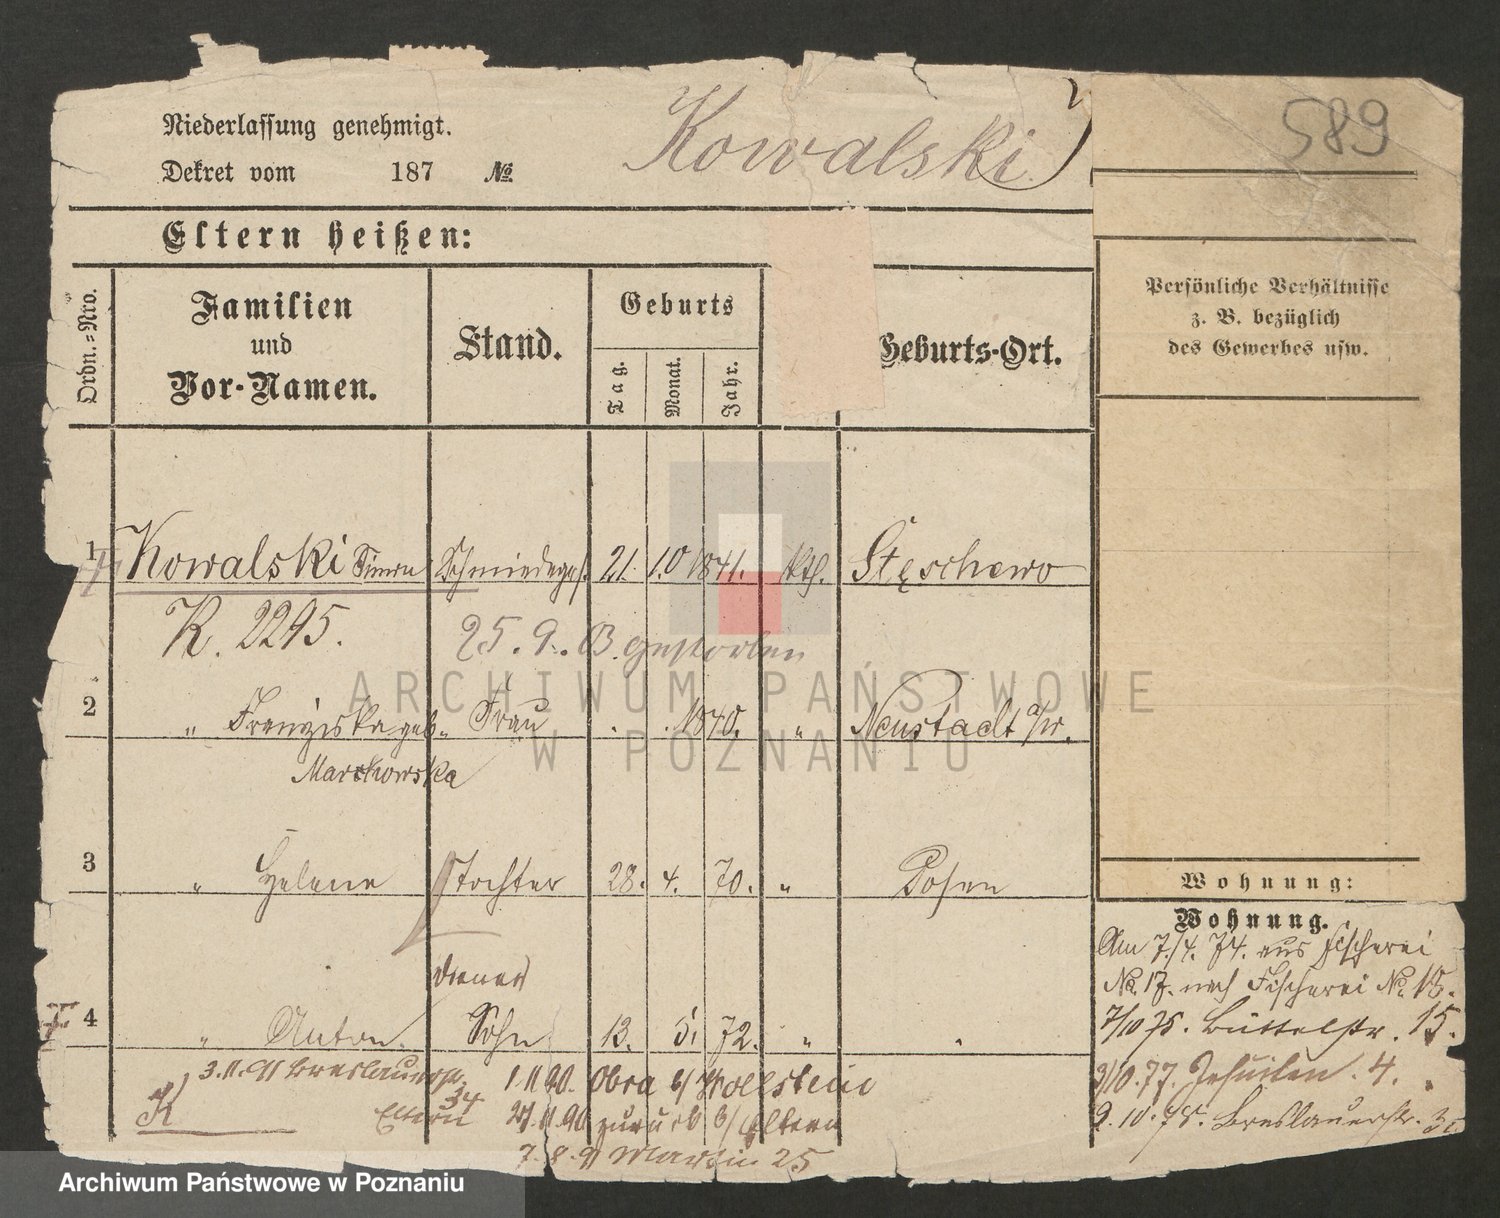 589
Niederlassung genehmigt.
Kowalski
Dekret vom 187 No.
Eltern heißen:
Ordn.-Nro.
Familien und Vor-Namen.
Stand.
Geburts
Tag.
Monat.
Jahr.
Geburts-Ort.
Persönliche Verhältnisse
z. B. bezüglich
des Gewerbes usw.
1 Kowalski Simon Schmiedeges. 21. 10 1841. kth. Stęschewo
K. 2295. 25. 9. 03. gestorben
2 " Franziska geb. Frau . . 1840. " Neustadt a/W.
Markowska
3 " Helene Tochter 28. 4. 70. " Posen
Wohnung:
Wohnung.
Am 7./4. 74. aus Fischerei
No. 17. nach Fischerei No. 18.
7/10 75. Büttelstr. 15.
3/10. 77. Jesuiten. 4.
9. 10. 78. Breslauerstr.
Diener
4 " Anton. Sohn 13. 5. 72. " "
3. 11. 91 Breslauerstr. 34 1. 11 90. Obra b/ Wollstein
K Eltern 27. 11. 90 zurück b/ Eltern
7. 8. 91 Martin 25
ARCHIWUM PAŃSTWOWE
W POZNANIU
Archiwum Państwowe w Poznaniu